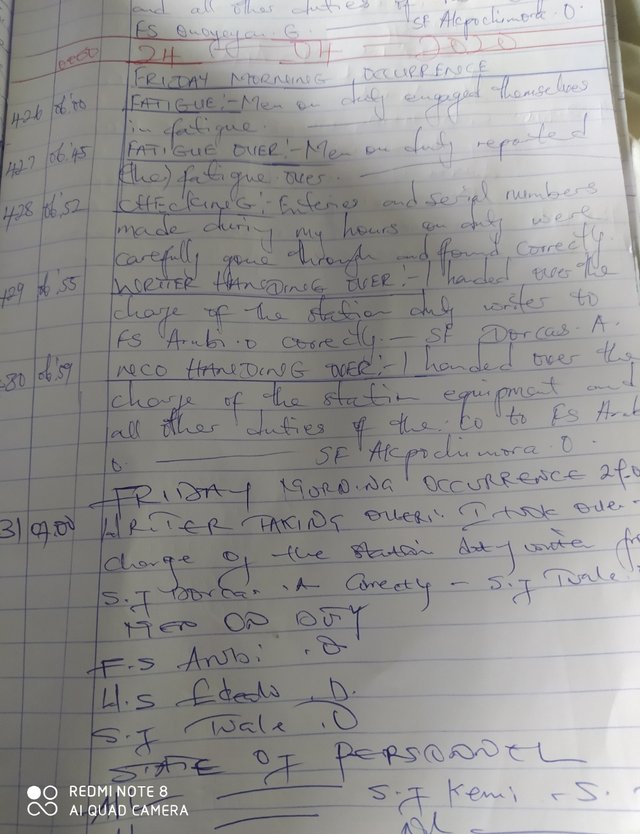 and all other duties of
FS G. SF Akpodimora. O
0000 24 04 2020
FRIDAY MORNING OCCURRENCE
426 06:00 FATIGUE:- Men on duty engaged themselves
in fatigue.
427 06:45 FATIGUE OVER:- Men on duty reported
(the) fatigue over.
428 06:52 CHECKING:- Enteries and serial numbers
made during my hours on duty were
carefully gone through and found correctly.
429 06:55 WRITER HANDING OVER:- I handed over the
charge of the station duty writer to
FS Arubi.O correctly. — SF Dorcas. A.
06:59 NCO HANDING OVER:- I handed over the
charge of the station equipment and
all other duties of the to to FS
o. SF Akpodimora. O.
FRIDAY MORDING OCCURRENCE
31 07.00 WRITER TAKING OVER:. I took over
charge of the station duty writer
S.f Dorcas .A Corectly - S.f Tuale
MEN ON DUTY
F.S Arubi .O
H.S D.
S.f Tuale .O
STATE Of PERSONNEL
S.f Kemi . S.
REDMI NOTE 8
AI QUAD CAMERA